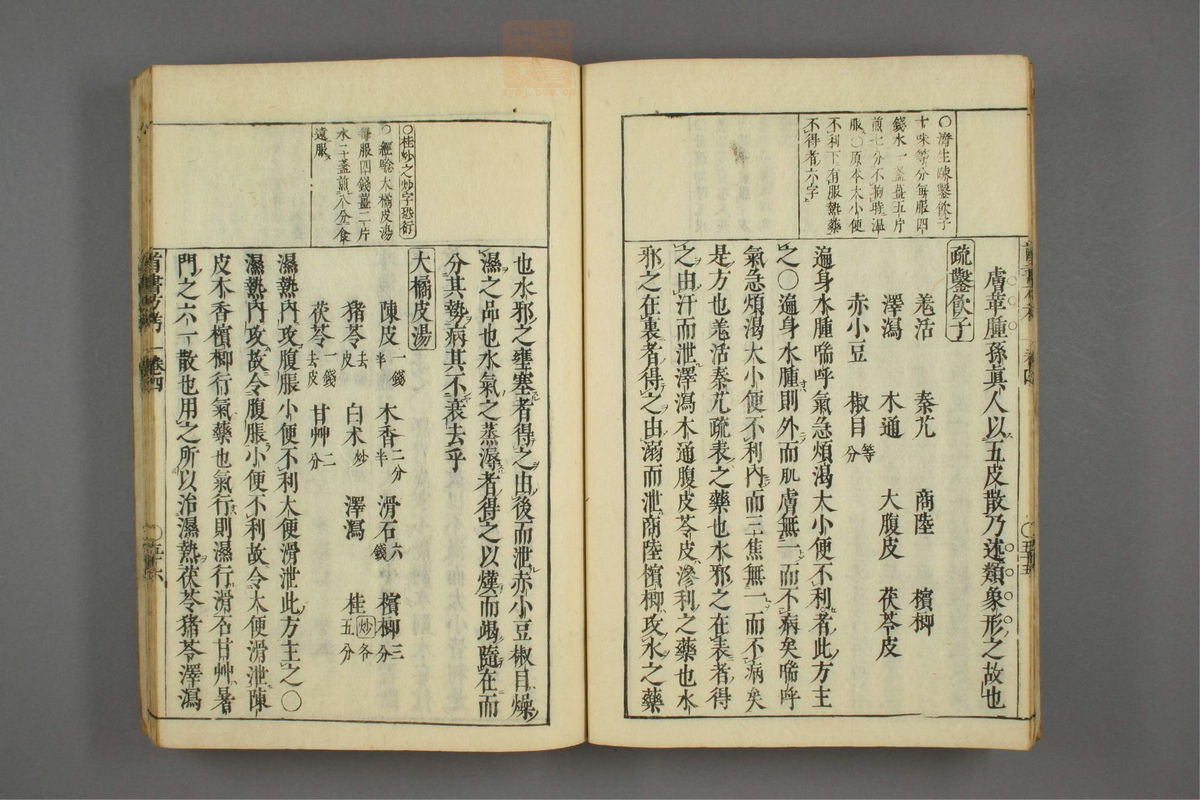 ○濟生疎鑿飲子
十味等分每服四
錢水一盞薑五片
煎七分不拘時溫
服○原本大小便
不利下有服熱藥
不得者六字
膚革腫孫眞人以五皮散乃述類象形之故也
疏鑿飲子
羌活 秦艽 商陸 檳榔
澤瀉 木通 大腹皮 茯苓皮
赤小豆 椒目等分
遍身水腫喘呼氣急煩渴大小便不利者此方主
之○遍身水腫則外而肌膚無一而不病矣喘呼
氣急煩渴大小便不利內而三焦無一而不病矣
是方也羌活秦艽疏表之藥也水邪之在表者得
之由汗而泄澤瀉木通腹皮苓皮滲利之藥也水
邪之在裏者得之由溺而泄商陸檳榔攻水之藥
○桂炒之炒字恐衍
○經驗大橘皮湯
每服四錢薑二片
水二盞煎八分食
遠服
也水邪之壅塞者得之由後而泄赤小豆椒目燥
濕之品也水氣之蒸溽者得之以熯而竭隨在而
分其勢病其不衰去乎
大橘皮湯
陳皮一錢半 木香二分半 滑石六錢 檳榔三分
豬苓去皮 白朮炒 澤瀉 桂炒各五分
茯苓一錢去皮 甘艸二分
濕熱內攻腹脹小便不利大便滑泄此方主之○
濕熱內攻故令腹脹小便不利故令大便滑泄陳
皮木香檳榔行氣藥也氣行則濕行滑石甘艸暑
門之六一散也用之所以治濕熱茯苓豬苓澤瀉
醫書方考 卷四 ○五十六
卷四 ○五十五